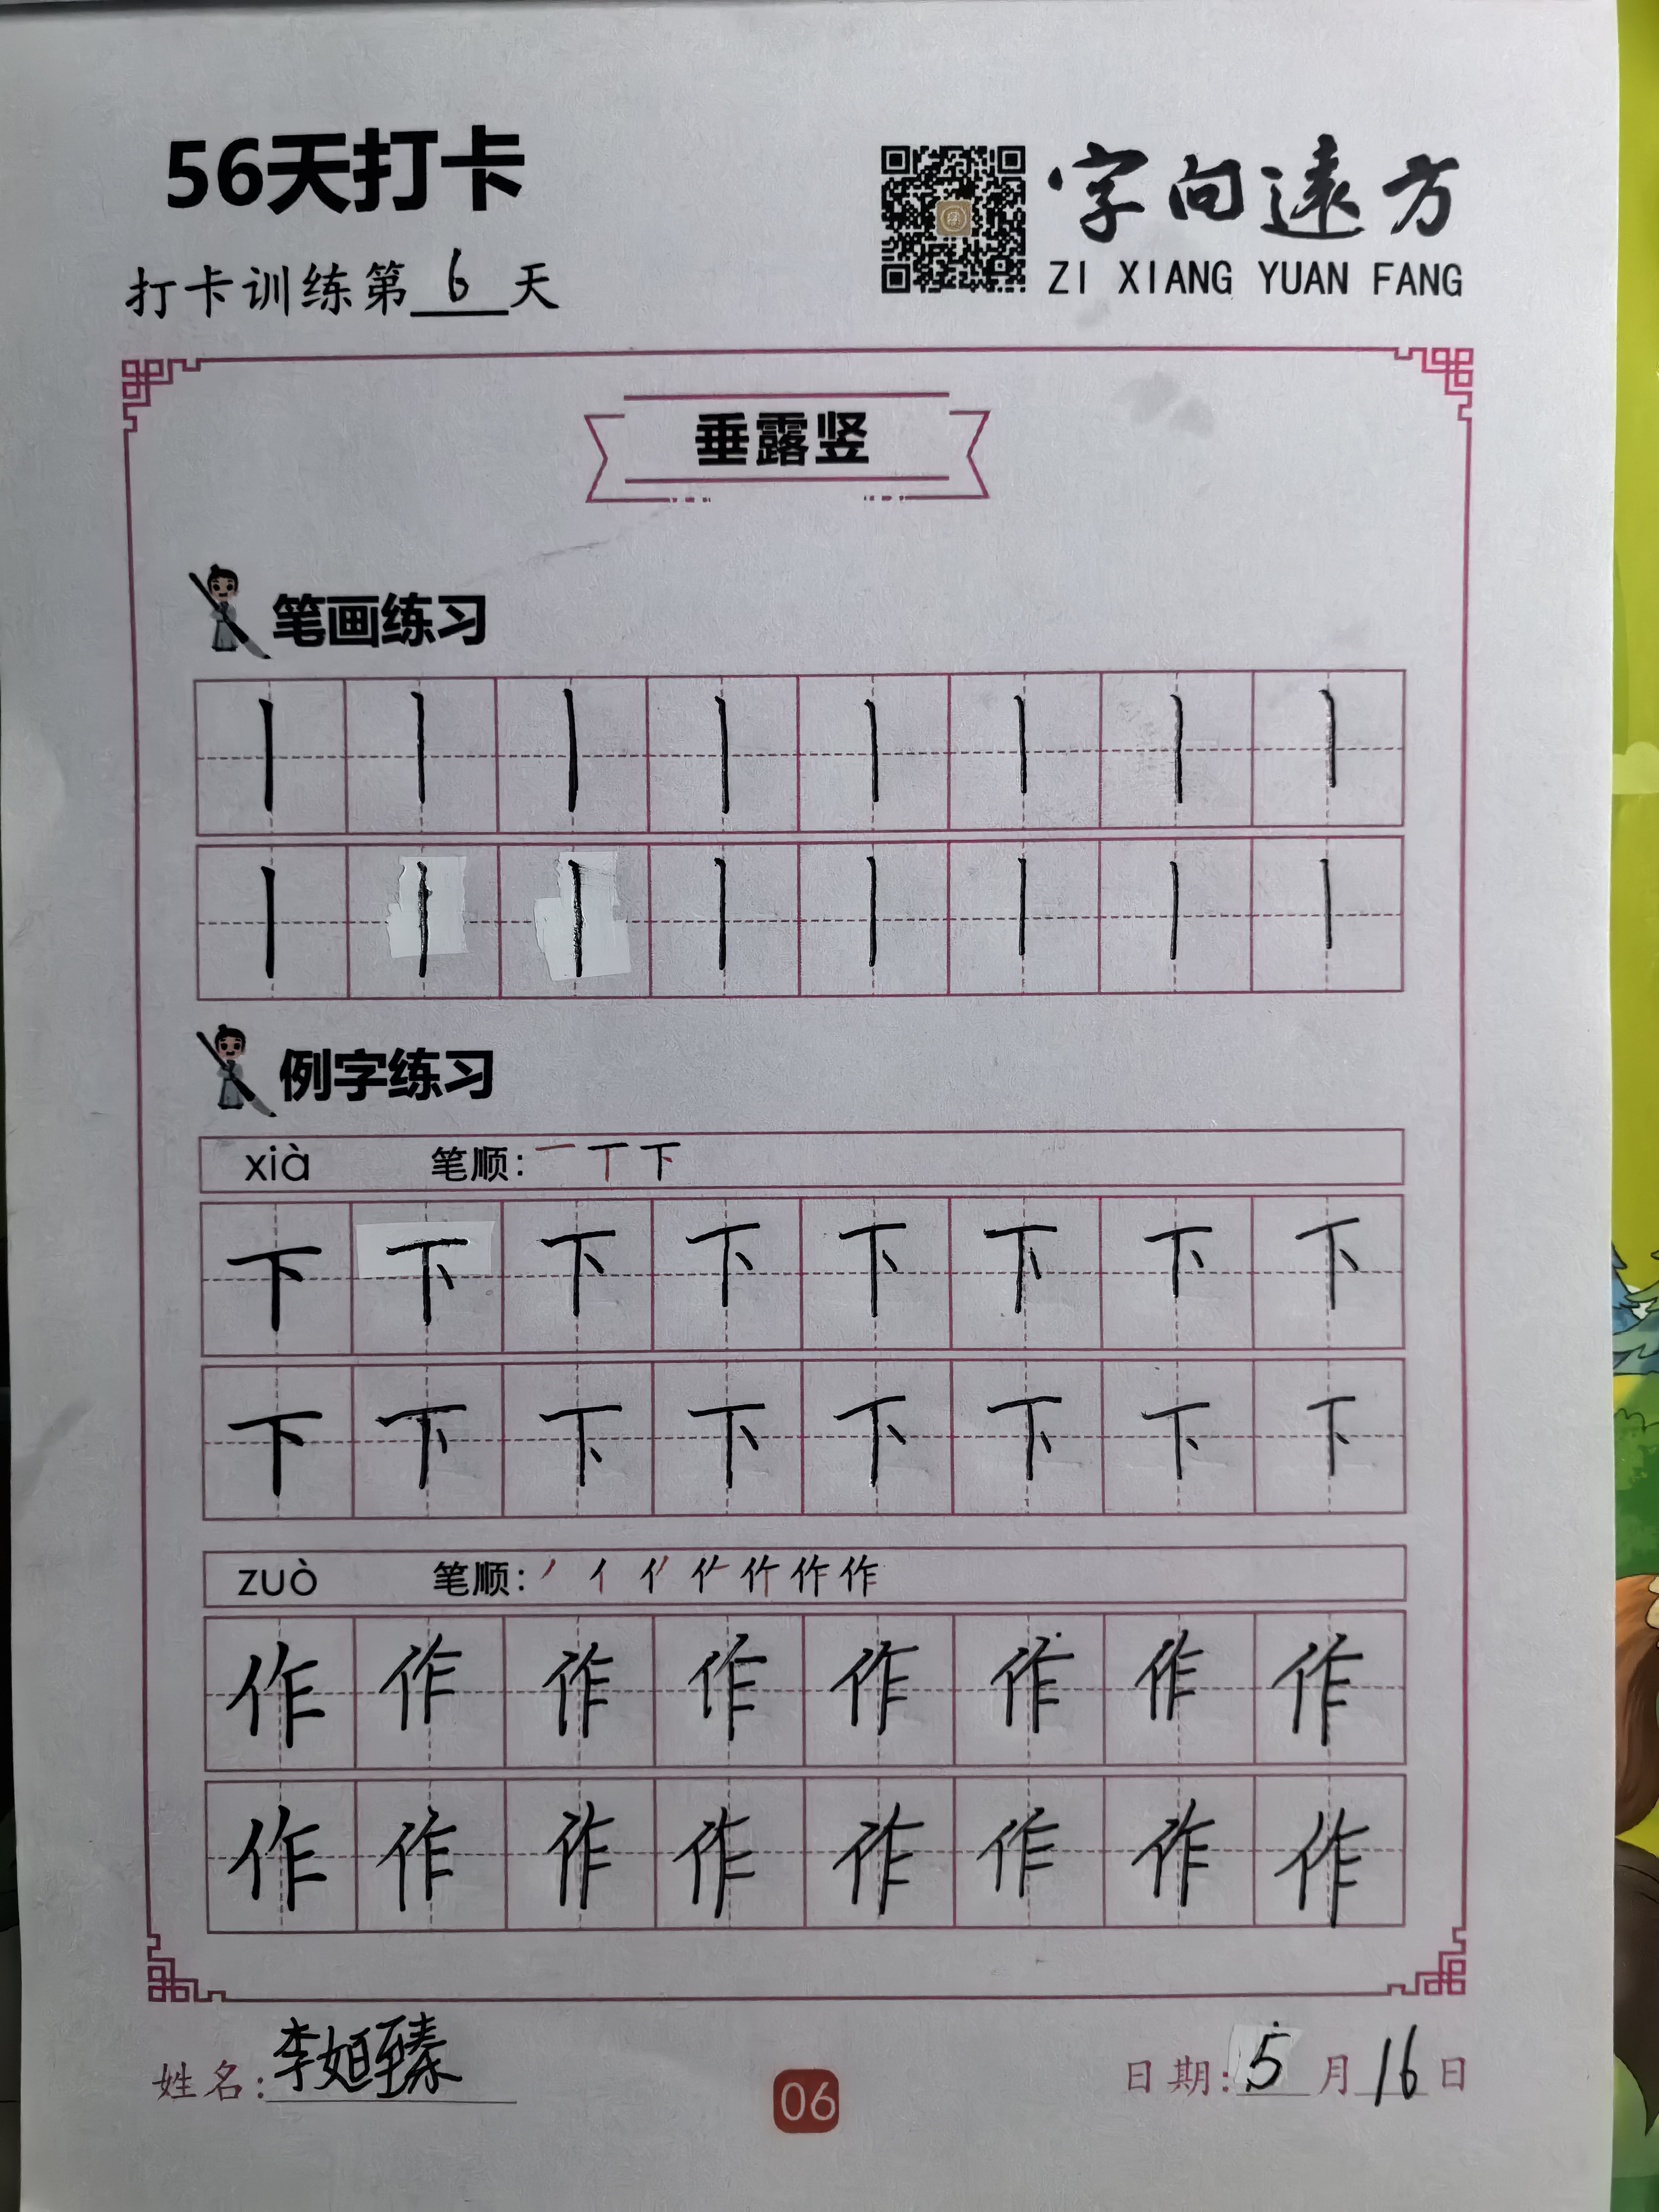 56天打卡
字向遠方
打卡训练第6天
ZI XIANG YUAN FANG
垂露竖
笔画练习
丨丨丨丨丨丨丨丨
丨丨丨丨丨丨丨丨
例字练习
xià 笔顺：一丅下
下下下下下下下下
下下下下下下下下
zuò 笔顺：丿亻作作
作作作作作作作作
作作作作作作作作
姓名：李姮臻
06
日期：5月16日